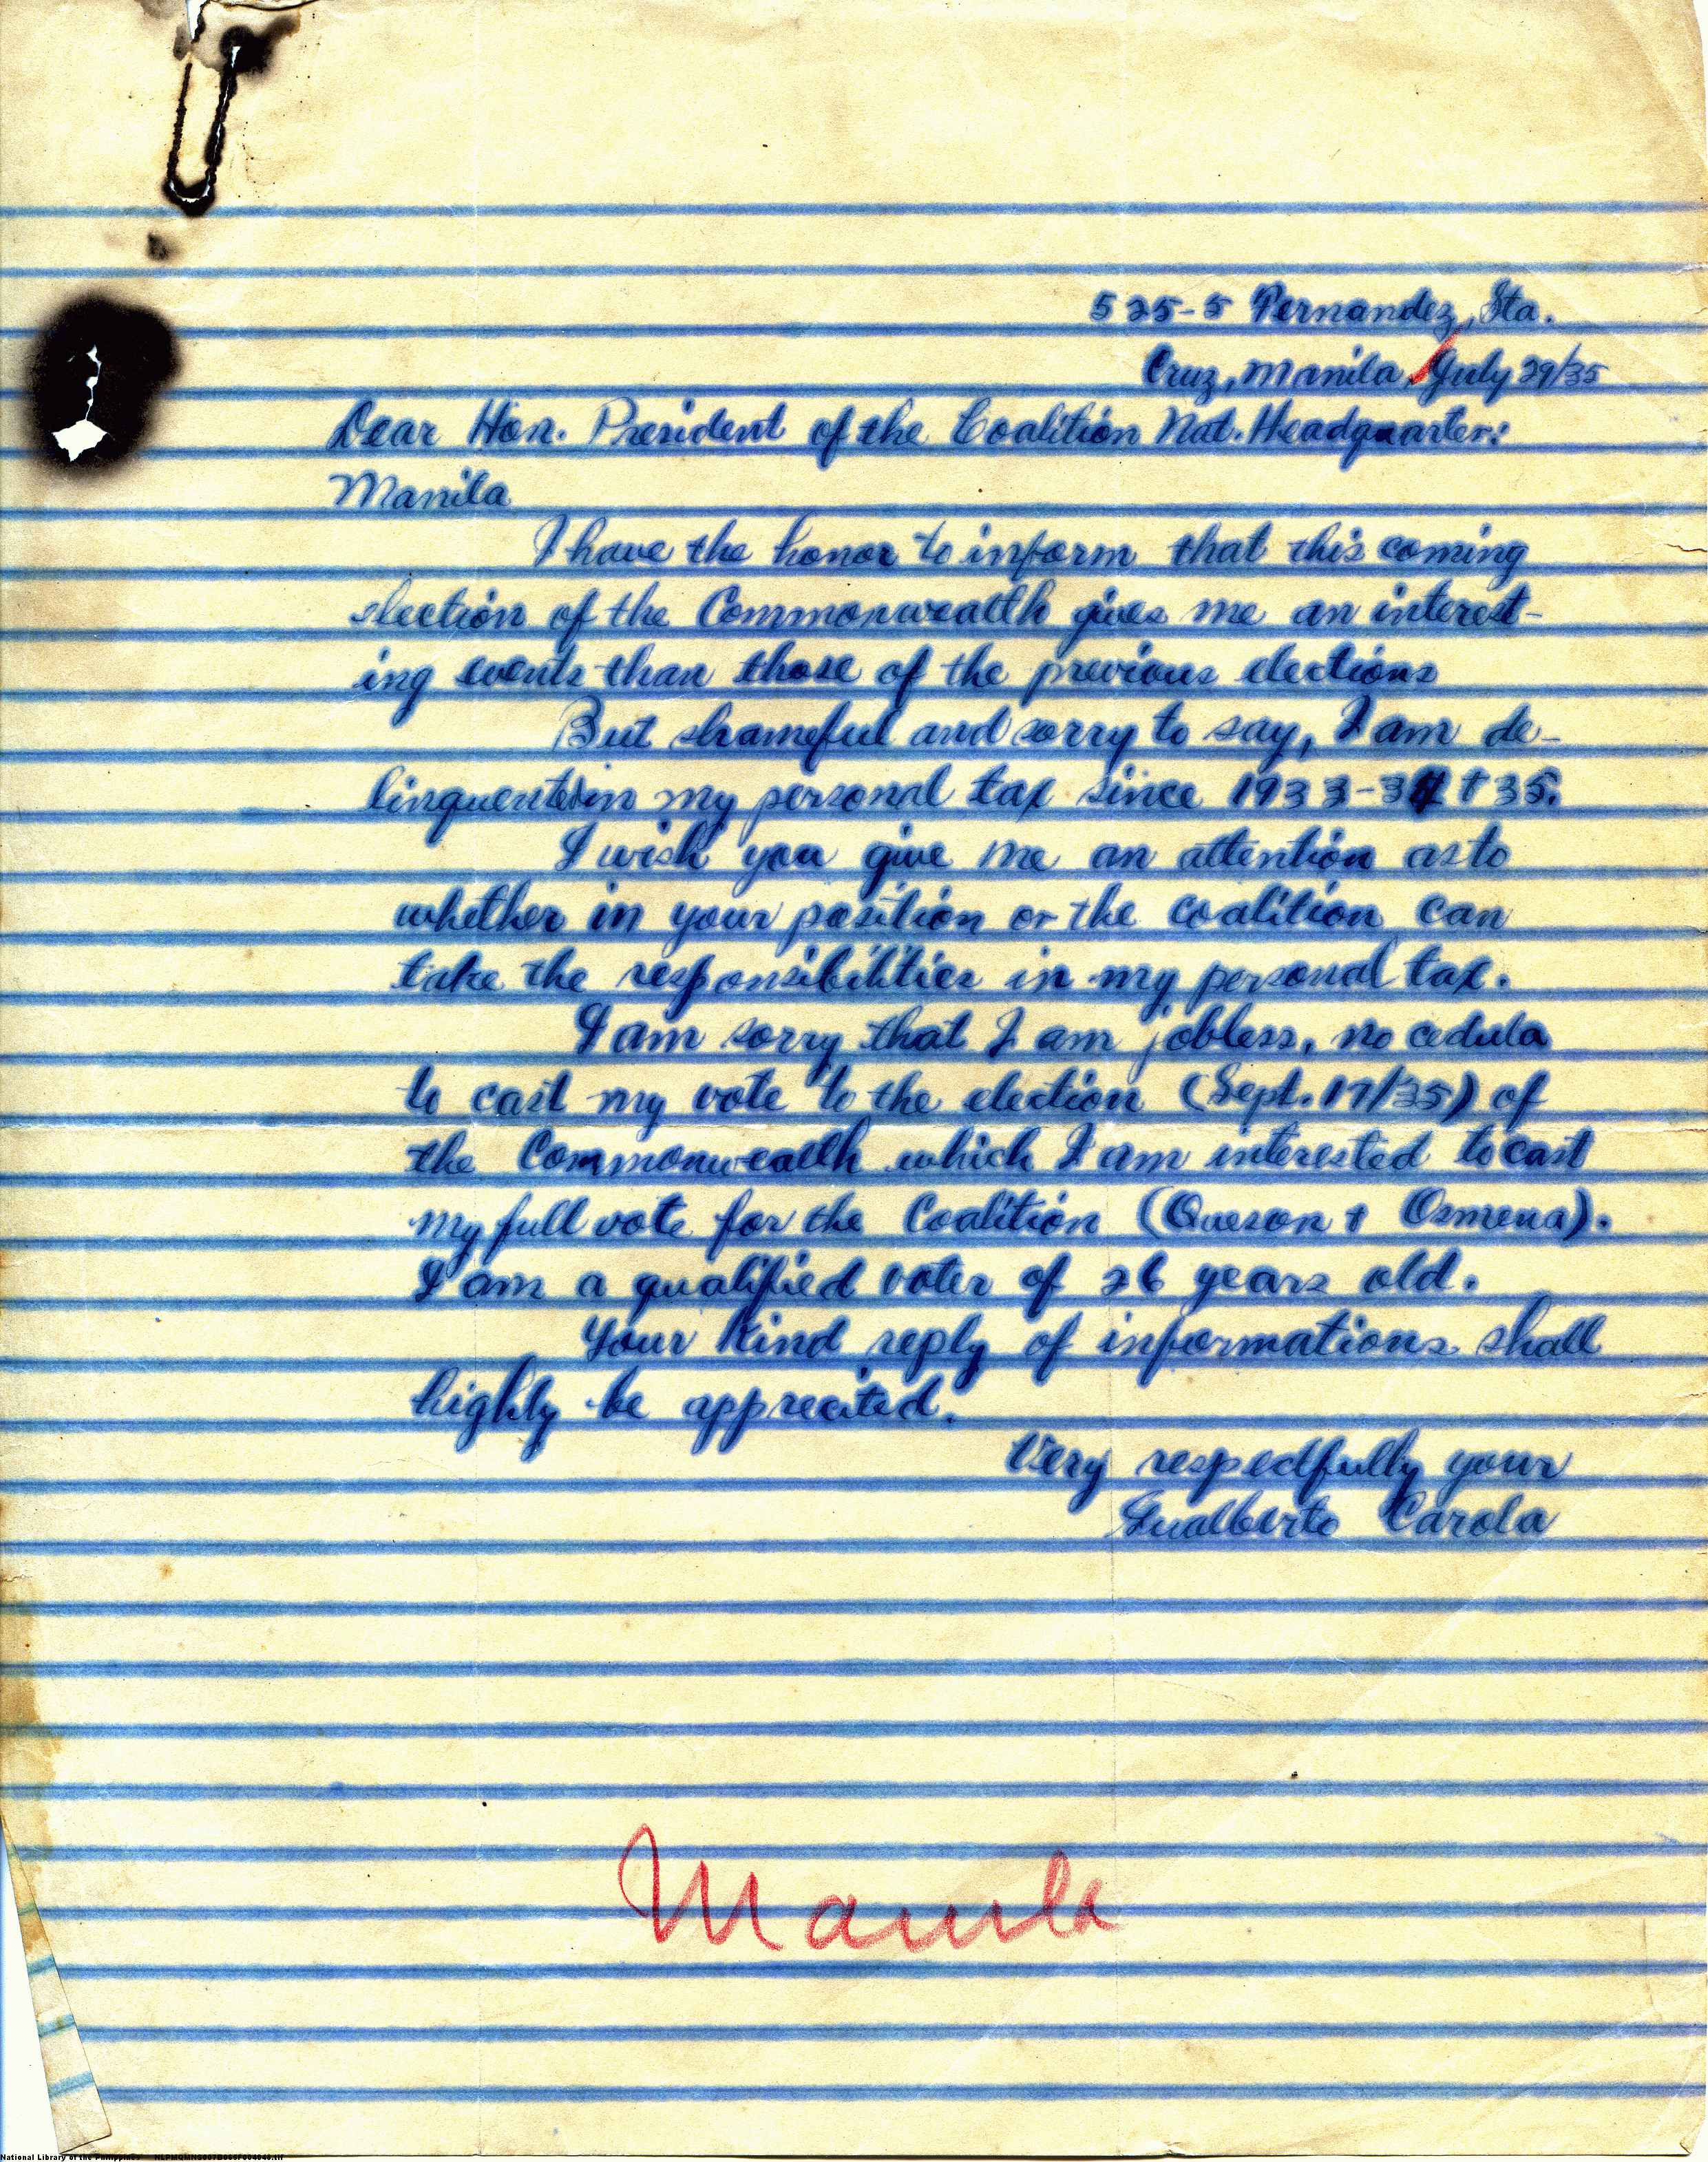 525-5 Fernandez, Sta.
Cruz, Manila, July 29/35
Dear Hon. President of the Coalition Nat. Headquarter:
Manila
I have the honor to inform that this coming
election of the Commonwealth gives me an interest-
ing events than those of the previous elections
But shameful and sorry to say, I am de-
linquented in my personal tax since 1933-34 + 35.
I wish you give me an attention as to
whether in your position or the coalition can
take the responsibilities in my personal tax.
I am sorry that I am jobless, no cedula
to cast my vote to the election (Sept. 17/35) of
the Commonwealth which I am interested to cast
my full vote for the Coalition (Queson + Osmena).
I am a qualified voter of 26 years old.
Your kind reply of informations shall
highly be apprecited.
Very respectfully your
Gualberto Carola
Manila
National Library of the Philippines